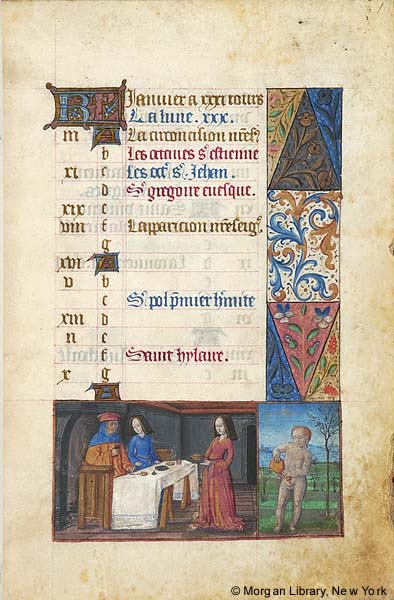 KL Januier a xxxi iours
La lune. xxx.
iii A La circoncision nres
b Les octaues st estienne
xi c Les oct st Jehan
d St gregoire euesque.
xix e
viii f Laparicion nre seigr
g
xvi A
v b
c St pol pmier hmite
xiii d
ii e
f Saint hylaire.
x g
A
© Morgan Library, New York